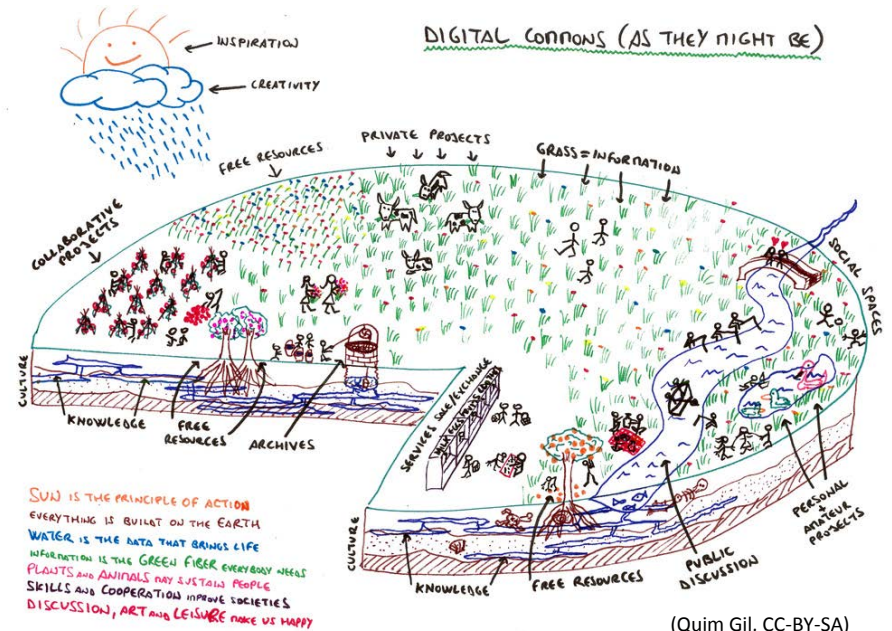 DIGITAL COMMONS (AS THEY MIGHT BE)
INSPIRATION
CREATIVITY
PRIVATE PROJECTS
FREE RESOURCES
GRASS = INFORMATION
COLLABORATIVE
PROJECTS
SOCIAL SPACES
CULTURE
KNOWLEDGE
FREE
RESOURCES
ARCHIVES
SERVICES SALE/EXCHANGE
CULTURE
KNOWLEDGE
FREE RESOURCES
PUBLIC
DISCUSSION
PERSONAL
+
AMATEUR
PROJECTS
SUN IS THE PRINCIPLE OF ACTION
EVERYTHING IS BUILDT ON THE EARTH
WATER IS THE DATA THAT BRINGS LIFE
INFORMATION IS THE GREEN FIBER EVERYBODY NEEDS
PLANTS AND ANIMALS MAY SUSTAIN PEOPLE
SKILLS AND COOPERATION IMPROVE SOCIETIES
DISCUSSION, ART AND LEISURE MAKE US HAPPY
(Quim Gil. CC-BY-SA)